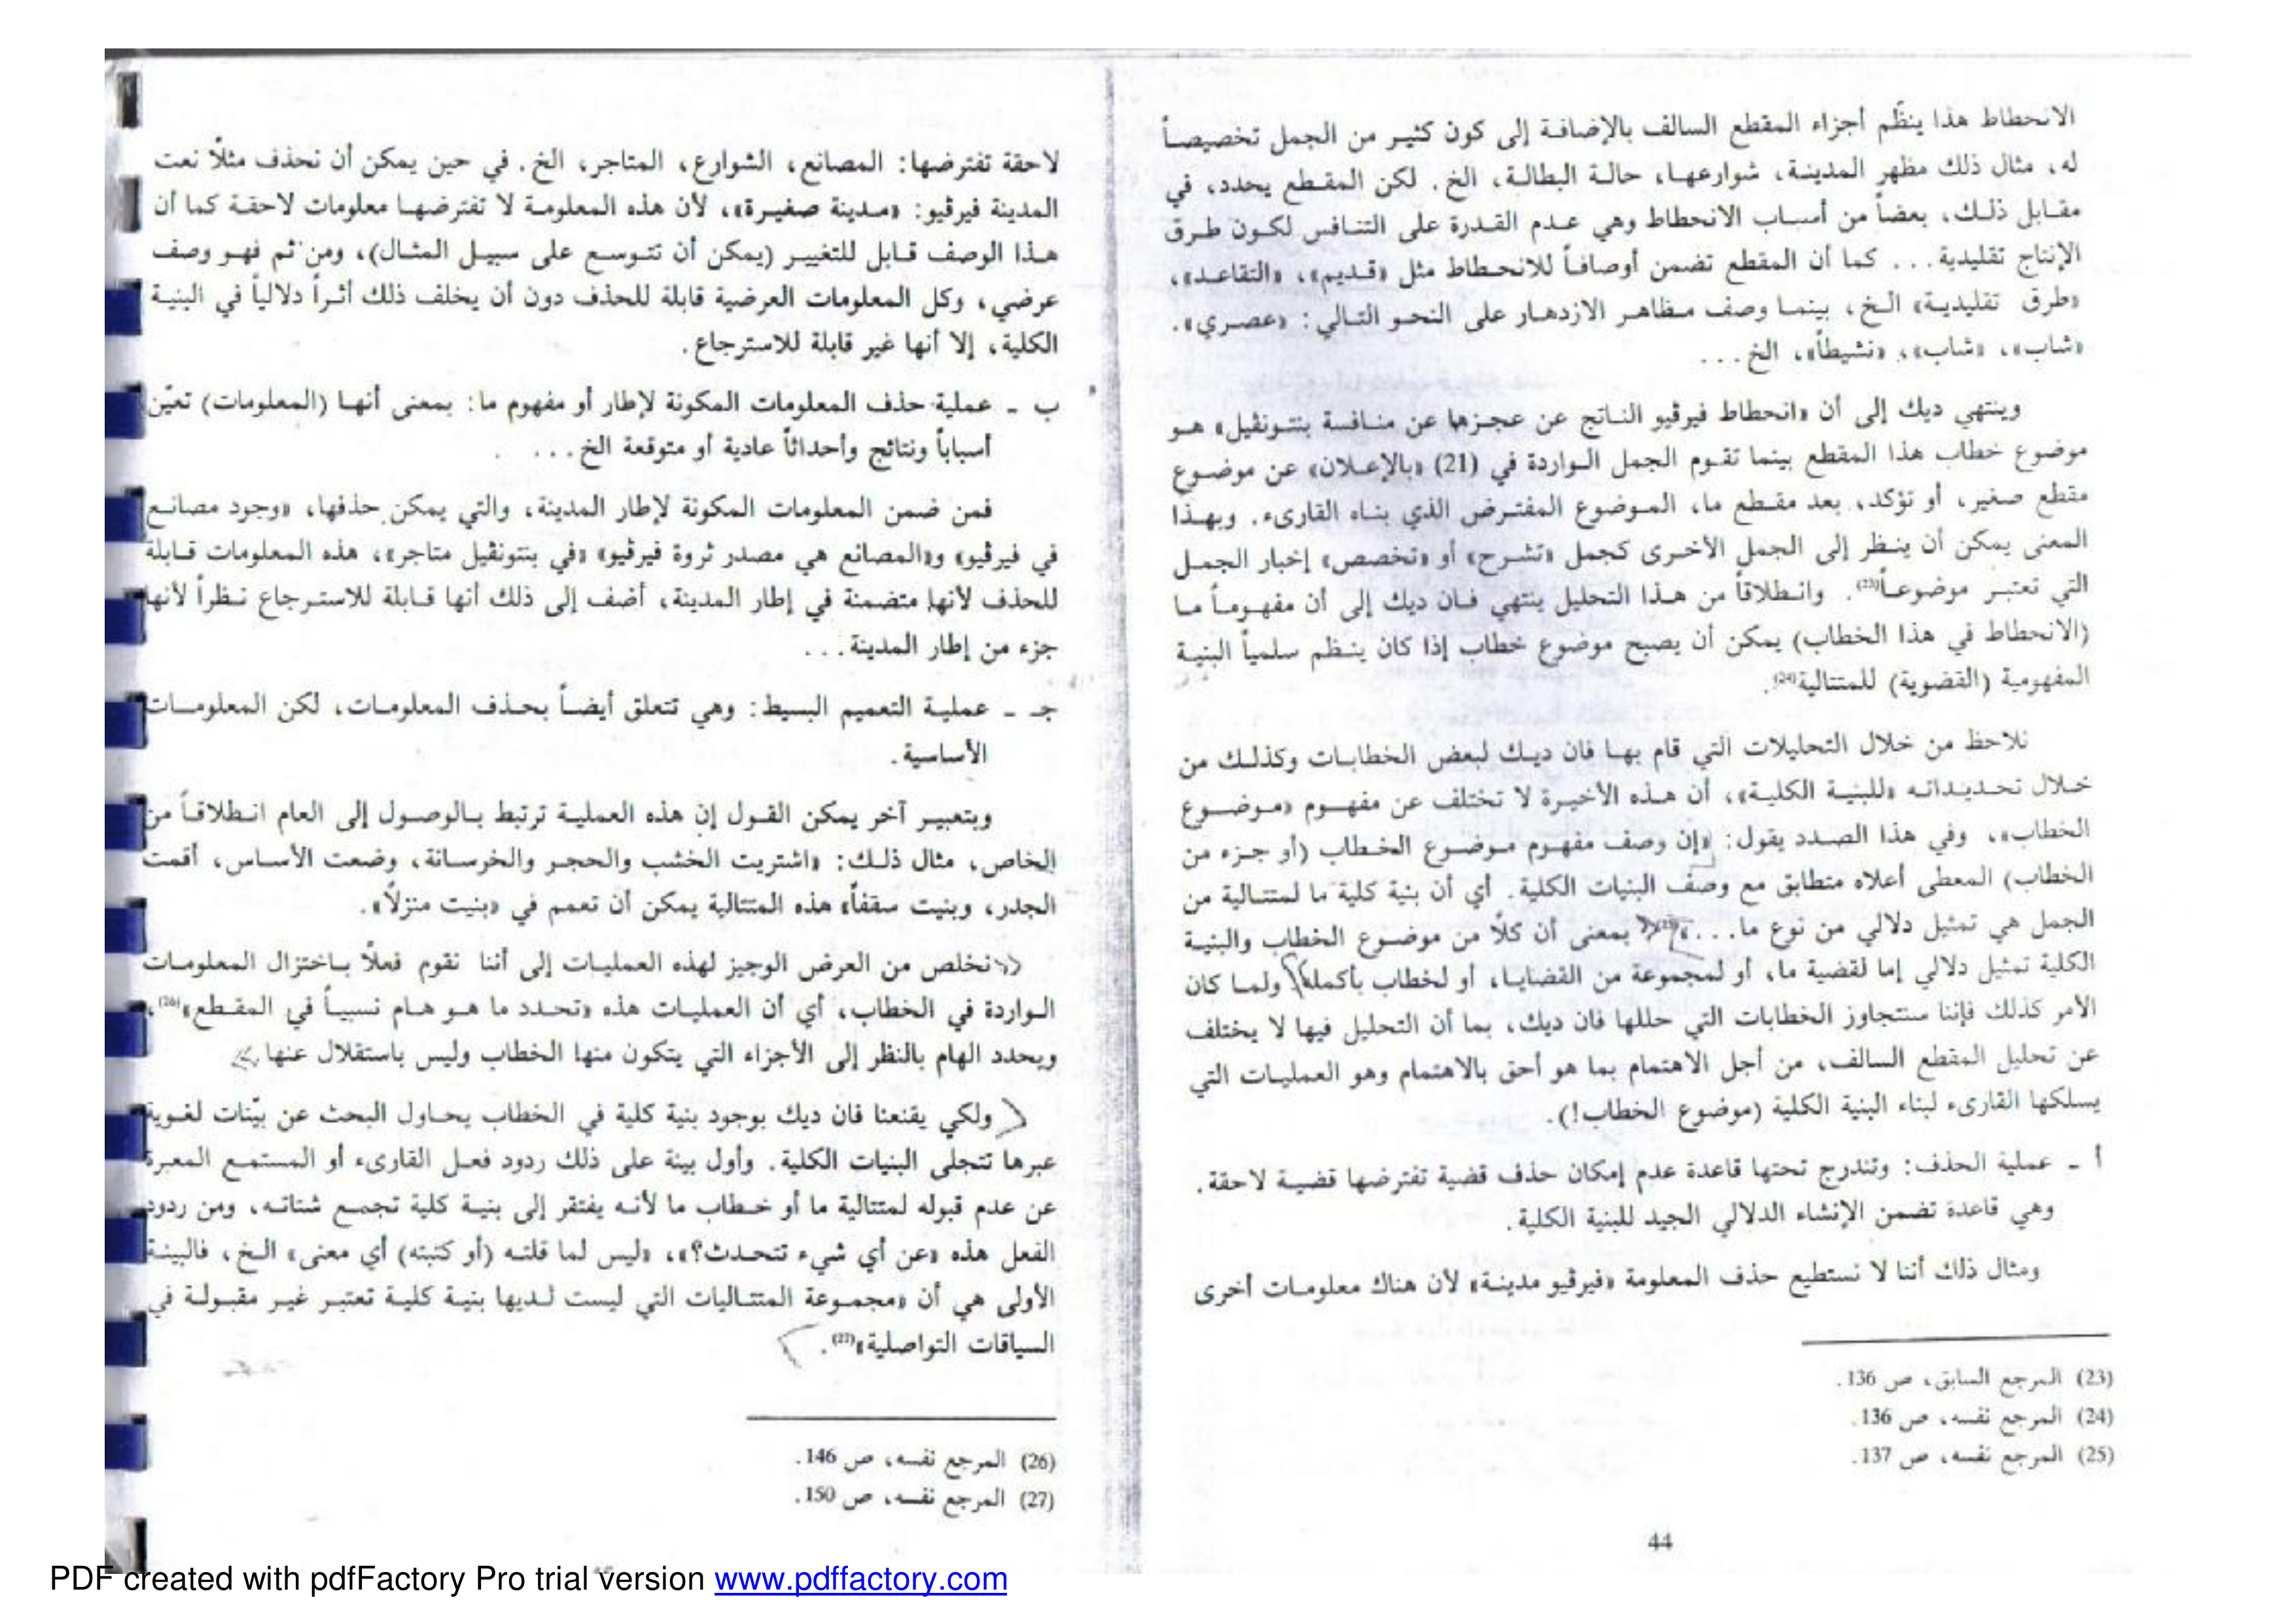 الانحطاط هذا ينظّم أجزاء المقطع السالف بالإضافة إلى كون كثير من الجمل تخصيصاً
له، مثال ذلك مظهر المدينة، شوارعها، حالة البطالة، الخ. لكن المقطع يحدد، في
مقابل ذلك، بعضاً من أسباب الانحطاط وهي عدم القدرة على التنافس لكون طرق
الإنتاج تقليدية... كما أن المقطع تضمن أوصافاً للانحطاط مثل «قديم»، «التقاعد»،
«طرق تقليدية» الخ، بينما وصف مظاهر الازدهار على النحو التالي: «عصري».
«شاب»، «شاب»، «نشيطاً»، الخ...
وينتهي ديك إلى أن «انحطاط فيرڤيو الناتج عن عجزها عن منافسة بنتونڤيل» هو
موضوع خطاب هذا المقطع بينما تقوم الجمل الواردة في (21) «بالإعلان» عن موضوع
مقطع صغير، أو تؤكد، بعد مقطع ما، الموضوع المفترض الذي بناه القارىء. وبهذا
المعنى يمكن أن ينظر إلى الجمل الأخرى كجمل «تشرح» أو «تخصص» إخبار الجمل
التي تعتبر موضوعاً(23). وانطلاقاً من هذا التحليل ينتهي فان ديك إلى أن مفهوماً ما
(الانحطاط في هذا الخطاب) يمكن أن يصبح موضوع خطاب إذا كان ينظم سلمياً البنية
المفهومية (القضوية) للمتتالية(24).
نلاحظ من خلال التحليلات التي قام بها فان ديك لبعض الخطابات وكذلك من
خلال تحديداته «للبنية الكلية»، أن هذه الأخيرة لا تختلف عن مفهوم «موضوع
الخطاب»، وفي هذا الصدد يقول: «إن وصف مفهوم موضوع الخطاب (أو جزء من
الخطاب) المعطى أعلاه متطابق مع وصف البنيات الكلية. أي أن بنية كلية ما لمتتالية من
الجمل هي تمثيل دلالي من نوع ما...»(25) بمعنى أن كلاً من موضوع الخطاب والبنية
الكلية تمثيل دلالي إما لقضية ما، أو لمجموعة من القضايا، أو لخطاب بأكمله ولما كان
الأمر كذلك فإننا سنتجاوز الخطابات التي حللها فان ديك، بما أن التحليل فيها لا يختلف
عن تحليل المقطع السالف، من أجل الاهتمام بما هو أحق بالاهتمام وهو العمليات التي
يسلكها القارىء لبناء البنية الكلية (موضوع الخطاب!).
أ ـ عملية الحذف: وتندرج تحتها قاعدة عدم إمكان حذف قضية تفترضها قضية لاحقة.
وهي قاعدة تضمن الإنشاء الدلالي الجيد للبنية الكلية.
ومثال ذلك أننا لا نستطيع حذف المعلومة «فيرڤيو مدينة» لأن هناك معلومات أخرى
(23) المرجع السابق، ص 136.
(24) المرجع نفسه، ص 136.
(25) المرجع نفسه، ص 137.
44
لاحقة تفترضها: المصانع، الشوارع، المتاجر، الخ. في حين يمكن أن نحذف مثلاً نعت
المدينة فيرڤيو: «مدينة صغيرة»، لأن هذه المعلومة لا تفترضها معلومات لاحقة كما أن
هذا الوصف قابل للتغيير (يمكن أن تتوسع على سبيل المثال)، ومن ثم فهو وصف
عرضي، وكل المعلومات العرضية قابلة للحذف دون أن يخلف ذلك أثراً دلالياً في البنية
الكلية، إلا أنها غير قابلة للاسترجاع.
ب ـ عملية حذف المعلومات المكونة لإطار أو مفهوم ما: بمعنى أنها (المعلومات) تعيّن
أسباباً ونتائج وأحداثاً عادية أو متوقعة الخ...
فمن ضمن المعلومات المكونة لإطار المدينة، والتي يمكن حذفها، «وجود مصانع
في فيرڤيو» و«المصانع هي مصدر ثروة فيرڤيو» «في بنتونڤيل متاجر»، هذه المعلومات قابلة
للحذف لأنها متضمنة في إطار المدينة، أضف إلى ذلك أنها قابلة للاسترجاع نظراً لأنها
جزء من إطار المدينة...
جـ ـ عملية التعميم البسيط: وهي تتعلق أيضاً بحذف المعلومات، لكن المعلومات
الأساسية.
وبتعبير آخر يمكن القول إن هذه العملية ترتبط بالوصول إلى العام انطلاقاً من
الخاص، مثال ذلك: «اشتريت الخشب والحجر والخرسانة، وضعت الأساس، أقمت
الجدر، وبنيت سقفاً» هذه المتتالية يمكن أن تعمم في «بنيت منزلاً».
نخلص من العرض الوجيز لهذه العمليات إلى أننا نقوم فعلاً باختزال المعلومات
الواردة في الخطاب، أي أن العمليات هذه «تحدد ما هو هام نسبياً في المقطع»(26)،
ويحدد الهام بالنظر إلى الأجزاء التي يتكون منها الخطاب وليس باستقلال عنها.
ولكي يقنعنا فان ديك بوجود بنية كلية في الخطاب يحاول البحث عن بيّنات لغوية
عبرها تتجلى البنيات الكلية. وأول بينة على ذلك ردود فعل القارىء أو المستمع المعبرة
عن عدم قبوله لمتتالية ما أو خطاب ما لأنه يفتقر إلى بنية كلية تجمع شتاته، ومن ردود
الفعل هذه «عن أي شيء تتحدث؟»، «ليس لما قلته (أو كتبته) أي معنى» الخ، فالبينة
الأولى هي أن «مجموعة المتتاليات التي ليست لديها بنية كلية تعتبر غير مقبولة في
السياقات التواصلية»(27).
(26) المرجع نفسه، ص 146.
(27) المرجع نفسه، ص 150.
PDF created with pdfFactory Pro trial version www.pdffactory.com